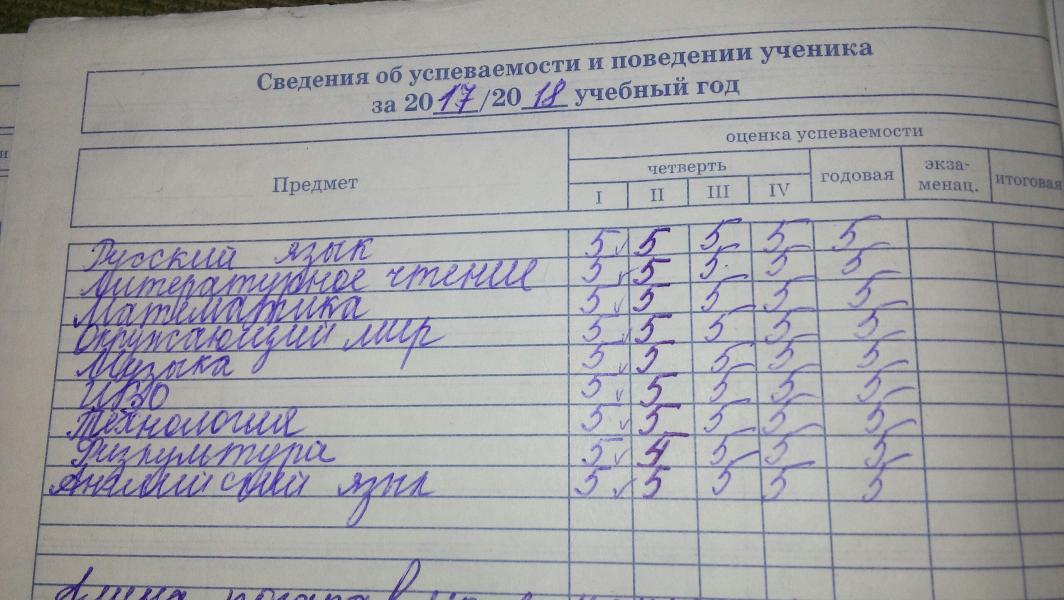 Сведения об успеваемости и поведении ученика
за 2017/2018 учебный год
Предмет
оценка успеваемости
четверть
годовая
экза-
менац.
итоговая
I II III IV
Русский язык 5 5 5 5 5
Литературное чтение 5 5 5 5 5
Математика 5 5 5 5 5
Окружающий мир 5 5 5 5 5
Музыка 5 5 5 5 5
ИЗО 5 5 5 5 5
Технология 5 5 5 5 5
Физкультура 5 4 5 5 5
Английский язык 5 5 5 5 5